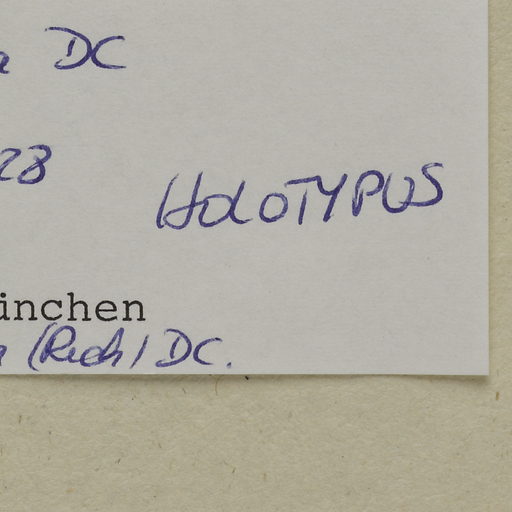 a DC
28
HOLOTYPUS
ünchen
a (Rech) DC.